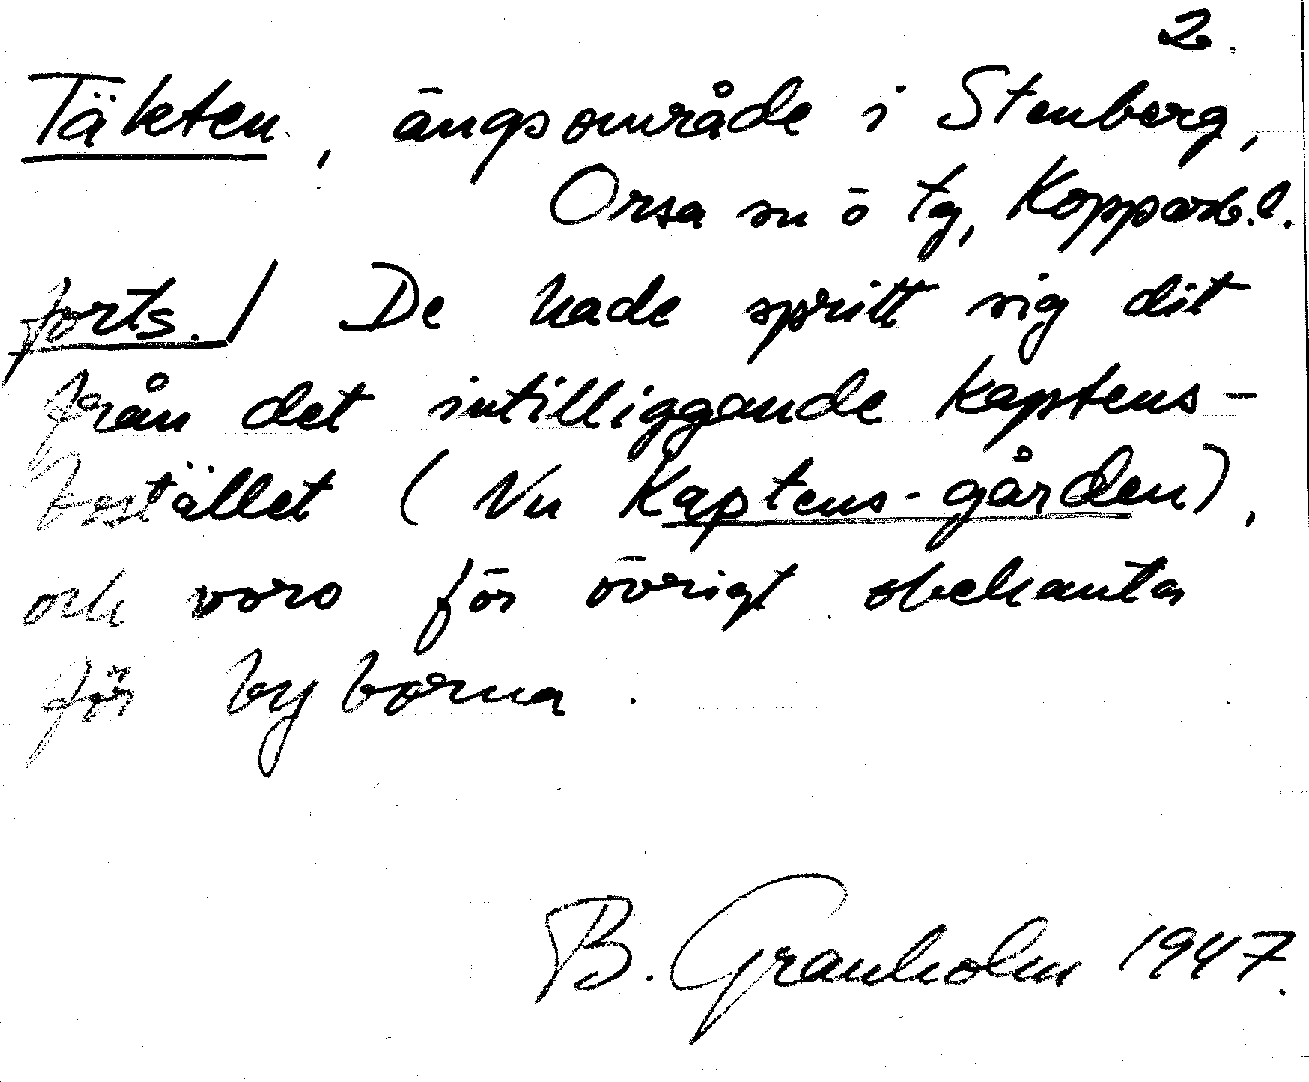 2.
Täkten, ängsområde i Stenberg,
Orsa sn ö tg, Kopparb.l.
forts./ De hade spritt sig dit
från det intilliggande kaptens-
bostället (Nu Kaptens-gården),
och voro för övrigt obekanta
för byborna.
B. Granholm 1947.